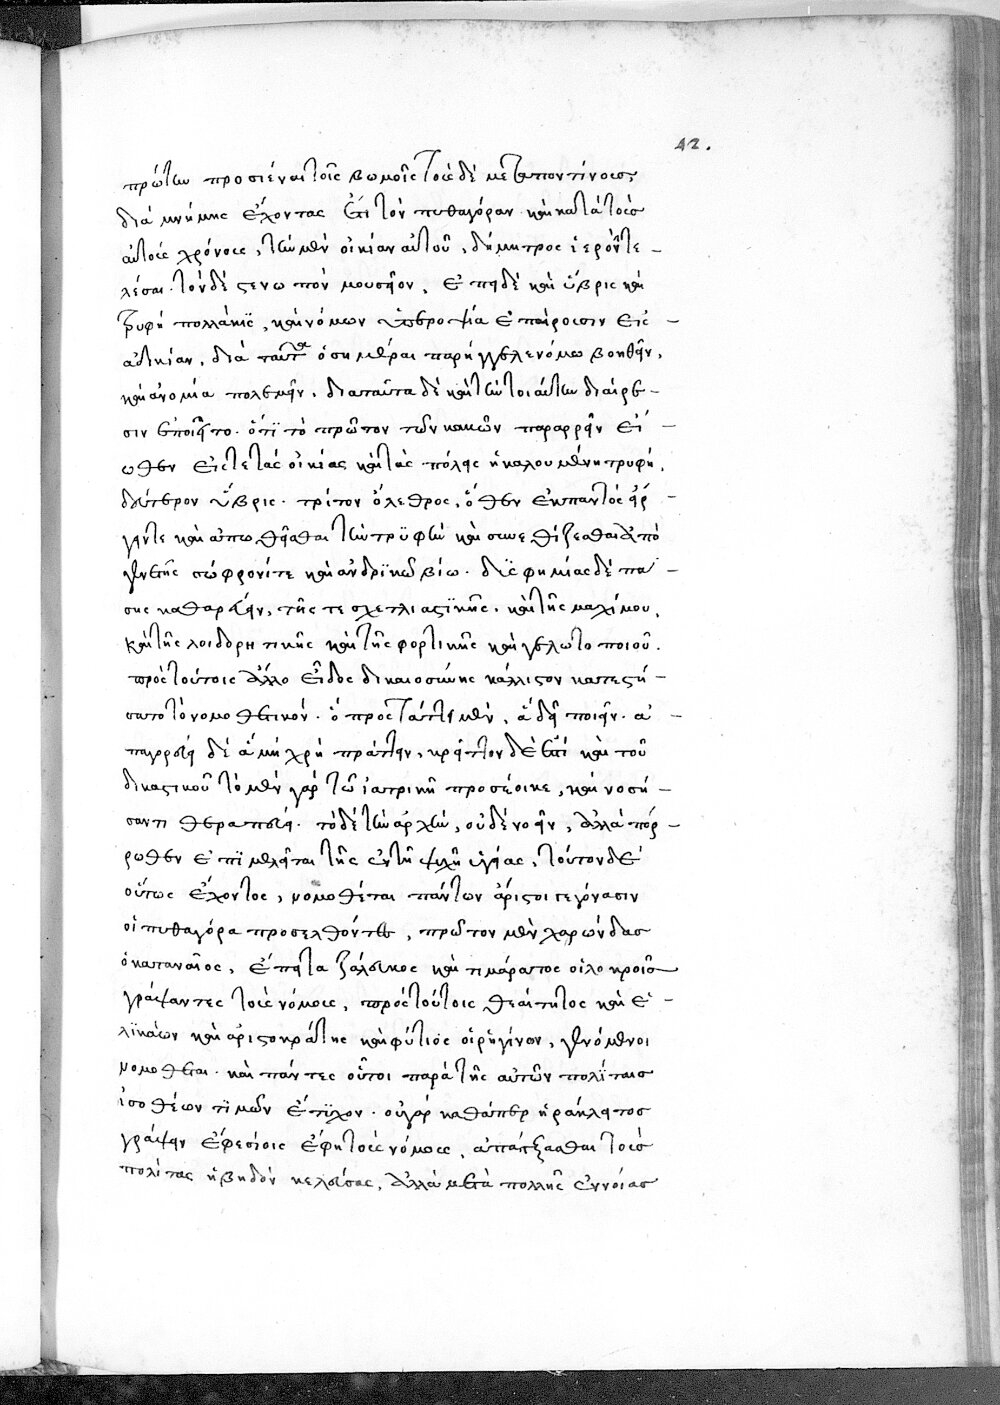 42.
πρώτων προσιέναι τοῖς βωμοῖς τοὺς δὲ μεταποντίνους,
διὰ μνήμης ἔχοντας ἔτι τὸν πυθαγόραν καὶ κατὰ τοὺς
αὐτοὺς χρόνους, τὴν μὲν οἰκίαν αὐτοῦ, δήμητρος ἱερὸν τε-
λέσαι. τὸν δὲ ςενωπὸν μουσεῖον. ἐπεὶ δὲ καὶ ὕβρις καὶ
τρυφὴ πολλάκις, καὶ νόμων ὑπεροψία ἐπαίρουσιν εἰς-
ἀδικίαν, διὰ ταῦτα ὁσημέραι παρήγγελε νόμω βοηθεῖν,
καὶ ἀνομία πολεμεῖν. διὰ ταῦτα δὲ καὶ τὴν τοιαύτην διαίρε-
σιν ἐποιεῖτο. ὅτι τὸ πρῶτον τῶν κακῶν παραρρεῖν εἴ-
ωθεν εἴς τε τὰς οἰκίας καὶ τὰς πόλεις ἡ καλουμένη τρυφή,
δεύτερον ὕβρις. τρίτον ὄλεθρος, ὅθεν ἐκ παντὸς εἴρ-
γειν τε καὶ ἀπωθεῖσθαι τὴν τρυφὴν καὶ συνεθίζεσθαι ἀπὸ
γενετῆς σώφρονί τε καὶ ἀνδρικῶ βίω. δυσφημίας δὲ πά-
σης καθαρεύειν, τῆς τε σχετλιαστικῆς. καὶ τῆς μαχίμου,
καὶ τῆς λοιδορητικῆς καὶ τῆς φορτικῆς καὶ γελωτοποιοῦ.
πρὸς τούτοις ἄλλο εἶδος δικαιοσύνης κάλλιςον κατεςή-
σατο τὸ νομοθετικόν. ὃ προςτάττει μὲν, ἃ δεῖ ποιεῖν. ἀ-
παγορεύει δὲ ἃ μὴ χρὴ πράττειν, κρεῖττον δὲ ἐςὶ καὶ τοῦ
δικαςικοῦ τὸ μὲν γὰρ τῶ ἰατρικῆ προσέοικε, καὶ νοσή-
σαντι θεραπεύει. τὸ δὲ τὴν ἀρχὴν, οὐδὲ νοσεῖν, ἀλλὰ πόρ-
ρωθεν ἐπιμελεῖται τῆς ἐν τῆ ψυχῆ ὑγείας, τούτου δὲ
οὕτως ἔχοντος, νομοθέται πάντων ἄριςοι γεγόνασιν
οἱ πυθαγόρα προσελθόντες, πρῶτον μὲν χαρώνδας
ὁ καταναῖος, ἔπειτα ζάλευκος καὶ τιμάρατος οἱ λοκροῖς
γράψαντες τοὺς νόμους, πρὸς τούτοις θεαίτητος καὶ ἑ-
λικάων καὶ ἀριςοκράτης καὶ φύτιος οἱ ῥηγίνων, γενόμενοι
νομοθέται. καὶ πάντες οὗτοι παρὰ τῆς αὐτῶν πολίταις
ἰσοθέων τιμῶν ἔτυχον. οὐ γὰρ καθάπερ ἡράκλειτος
γράψειν ἐφεσίοις ἔφη τοὺς νόμους, ἀπάγξασθαι τοὺς
πολίτας ἡβηδὸν κελεύσας, ἀλλὰ μετὰ πολλῆς εὐνοίας